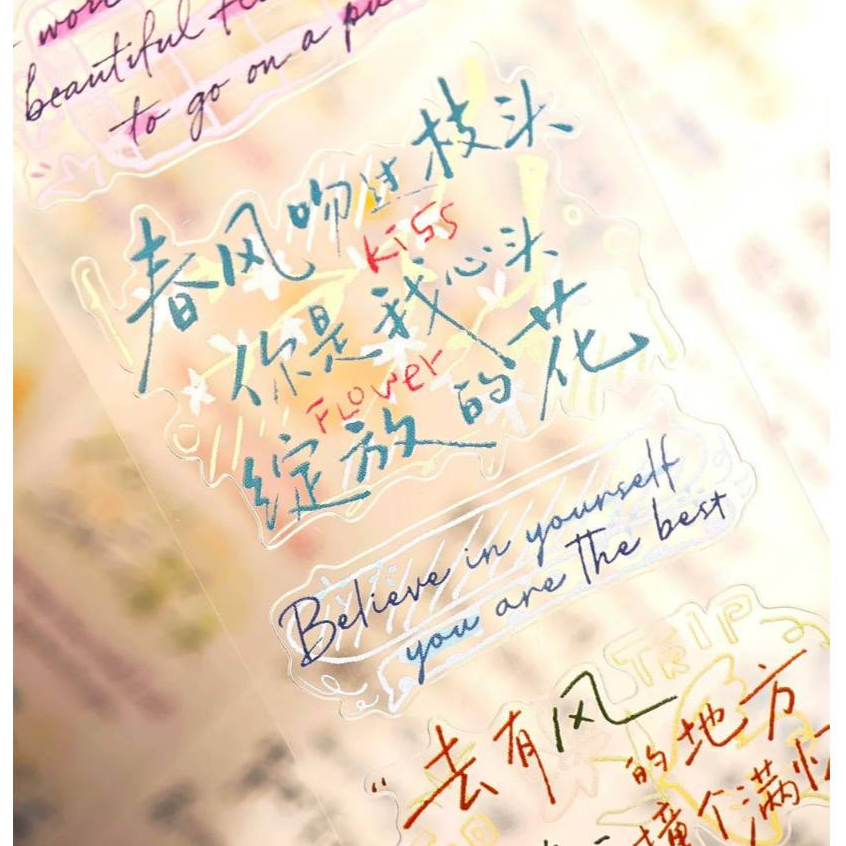 beautiful
to go on a
春风吻过枝头
Kiss
你是我心头
FLOWer
绽放的花
Believe in yourself
you are the best
TRIP
“去有风的地方
撞个满怀